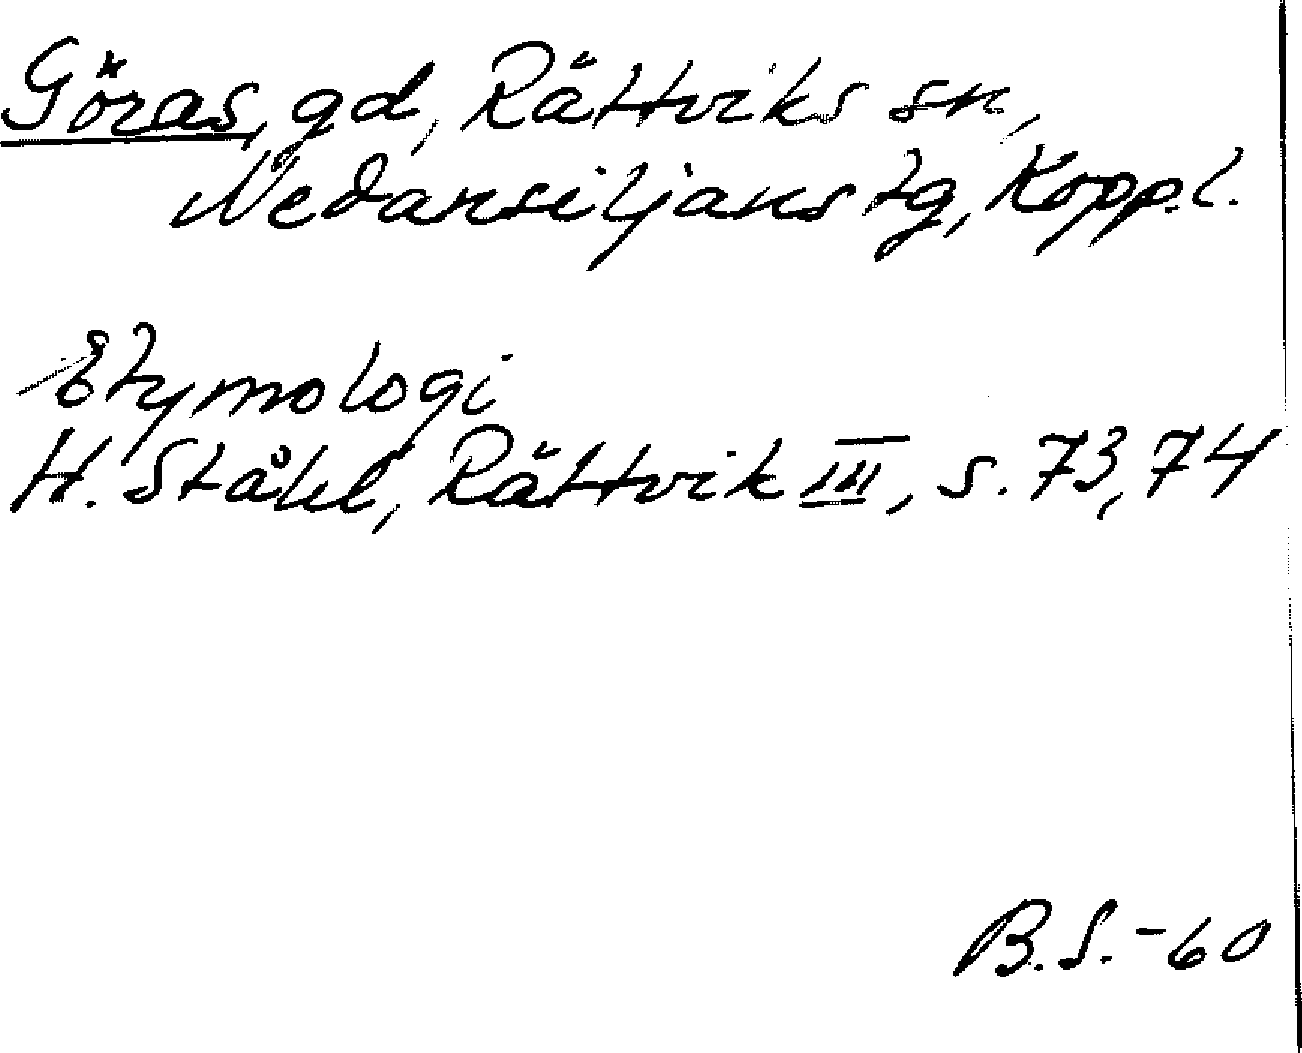 Göras, gd, Rättviks sn,
Nedansiljans tg, Kopp.l.
Etymologi
H. Ståhl, Rättvik III, s. 73, 74
B.S.-60